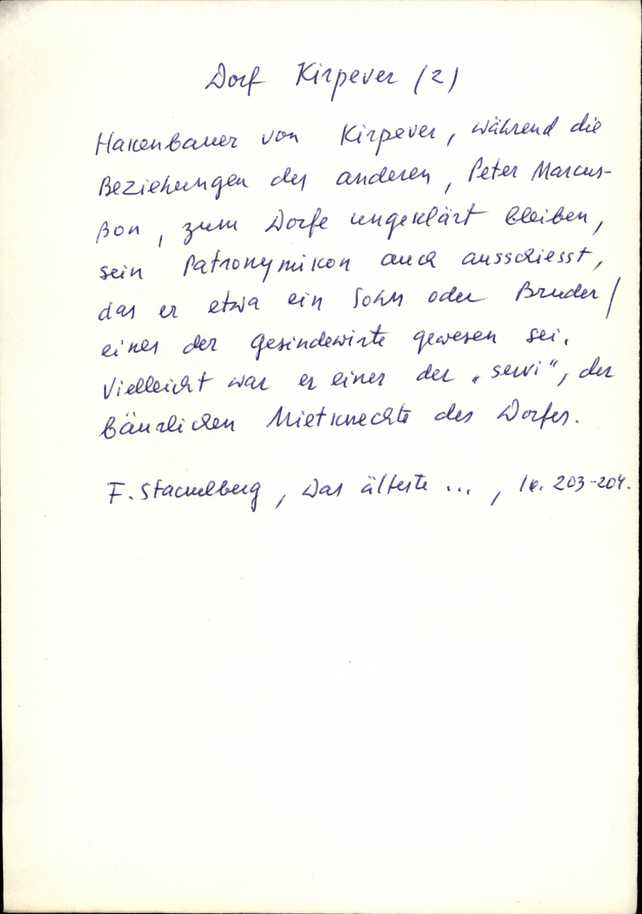 Dorf Kirpever (2)
Hakenbauer von Kirpever, während die
Beziehungen des anderen, Peter Marcus-
son, zum Dorfe ungeklärt bleiben,
sein Patronymikon auch ausschiesst,
das er etwa ein Sohn oder Bruder /
eines der Gesindewirte gewesen sei.
Vielleicht war er einer der „servi“, der
bäurlichen Mietknechte des Dorfes.
F. Stackelberg, Das älteste ..., lk. 203-204.